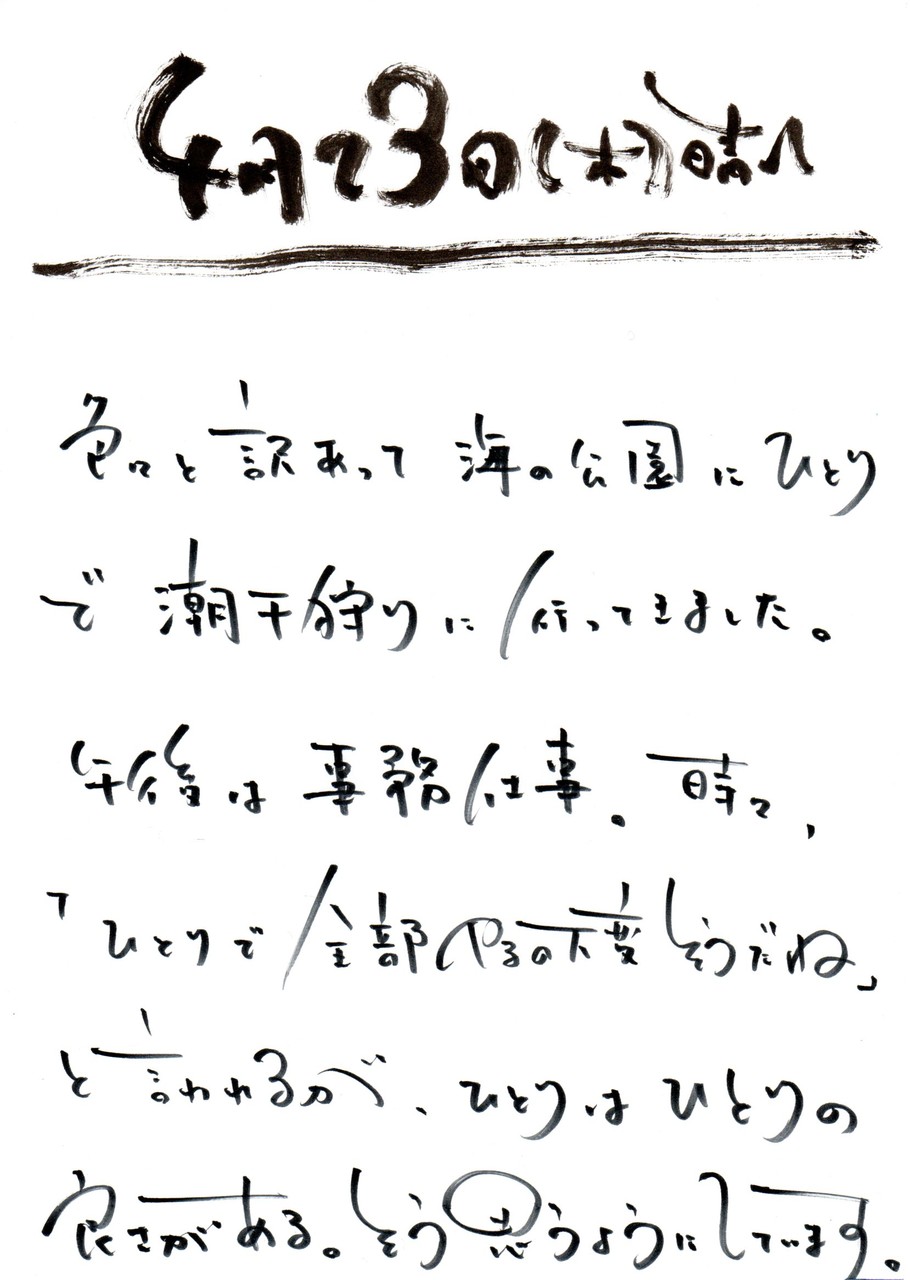 4月23日(木)晴れ
色々と訳あって 海の公園にひとり
で 潮干狩りに行ってきました。
午後は事務仕事。時々、
「ひとりで全部やるの大変そうだね」
と言われるが、ひとりはひとりの
良さがある。そう思うようにしています。